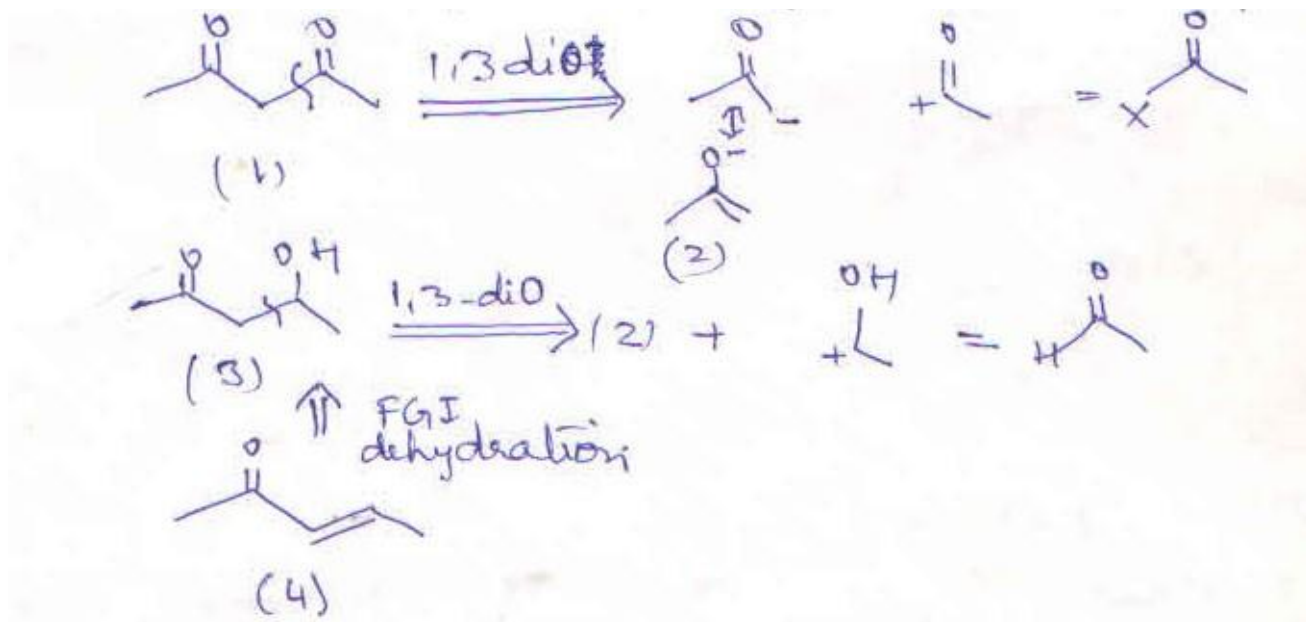 O O 1,3 diO O O O
- + = X
(1) O-
(2)
O OH 1,3-diO OH O
(3) (2) + + = H
FGI
O dehydration
(4)